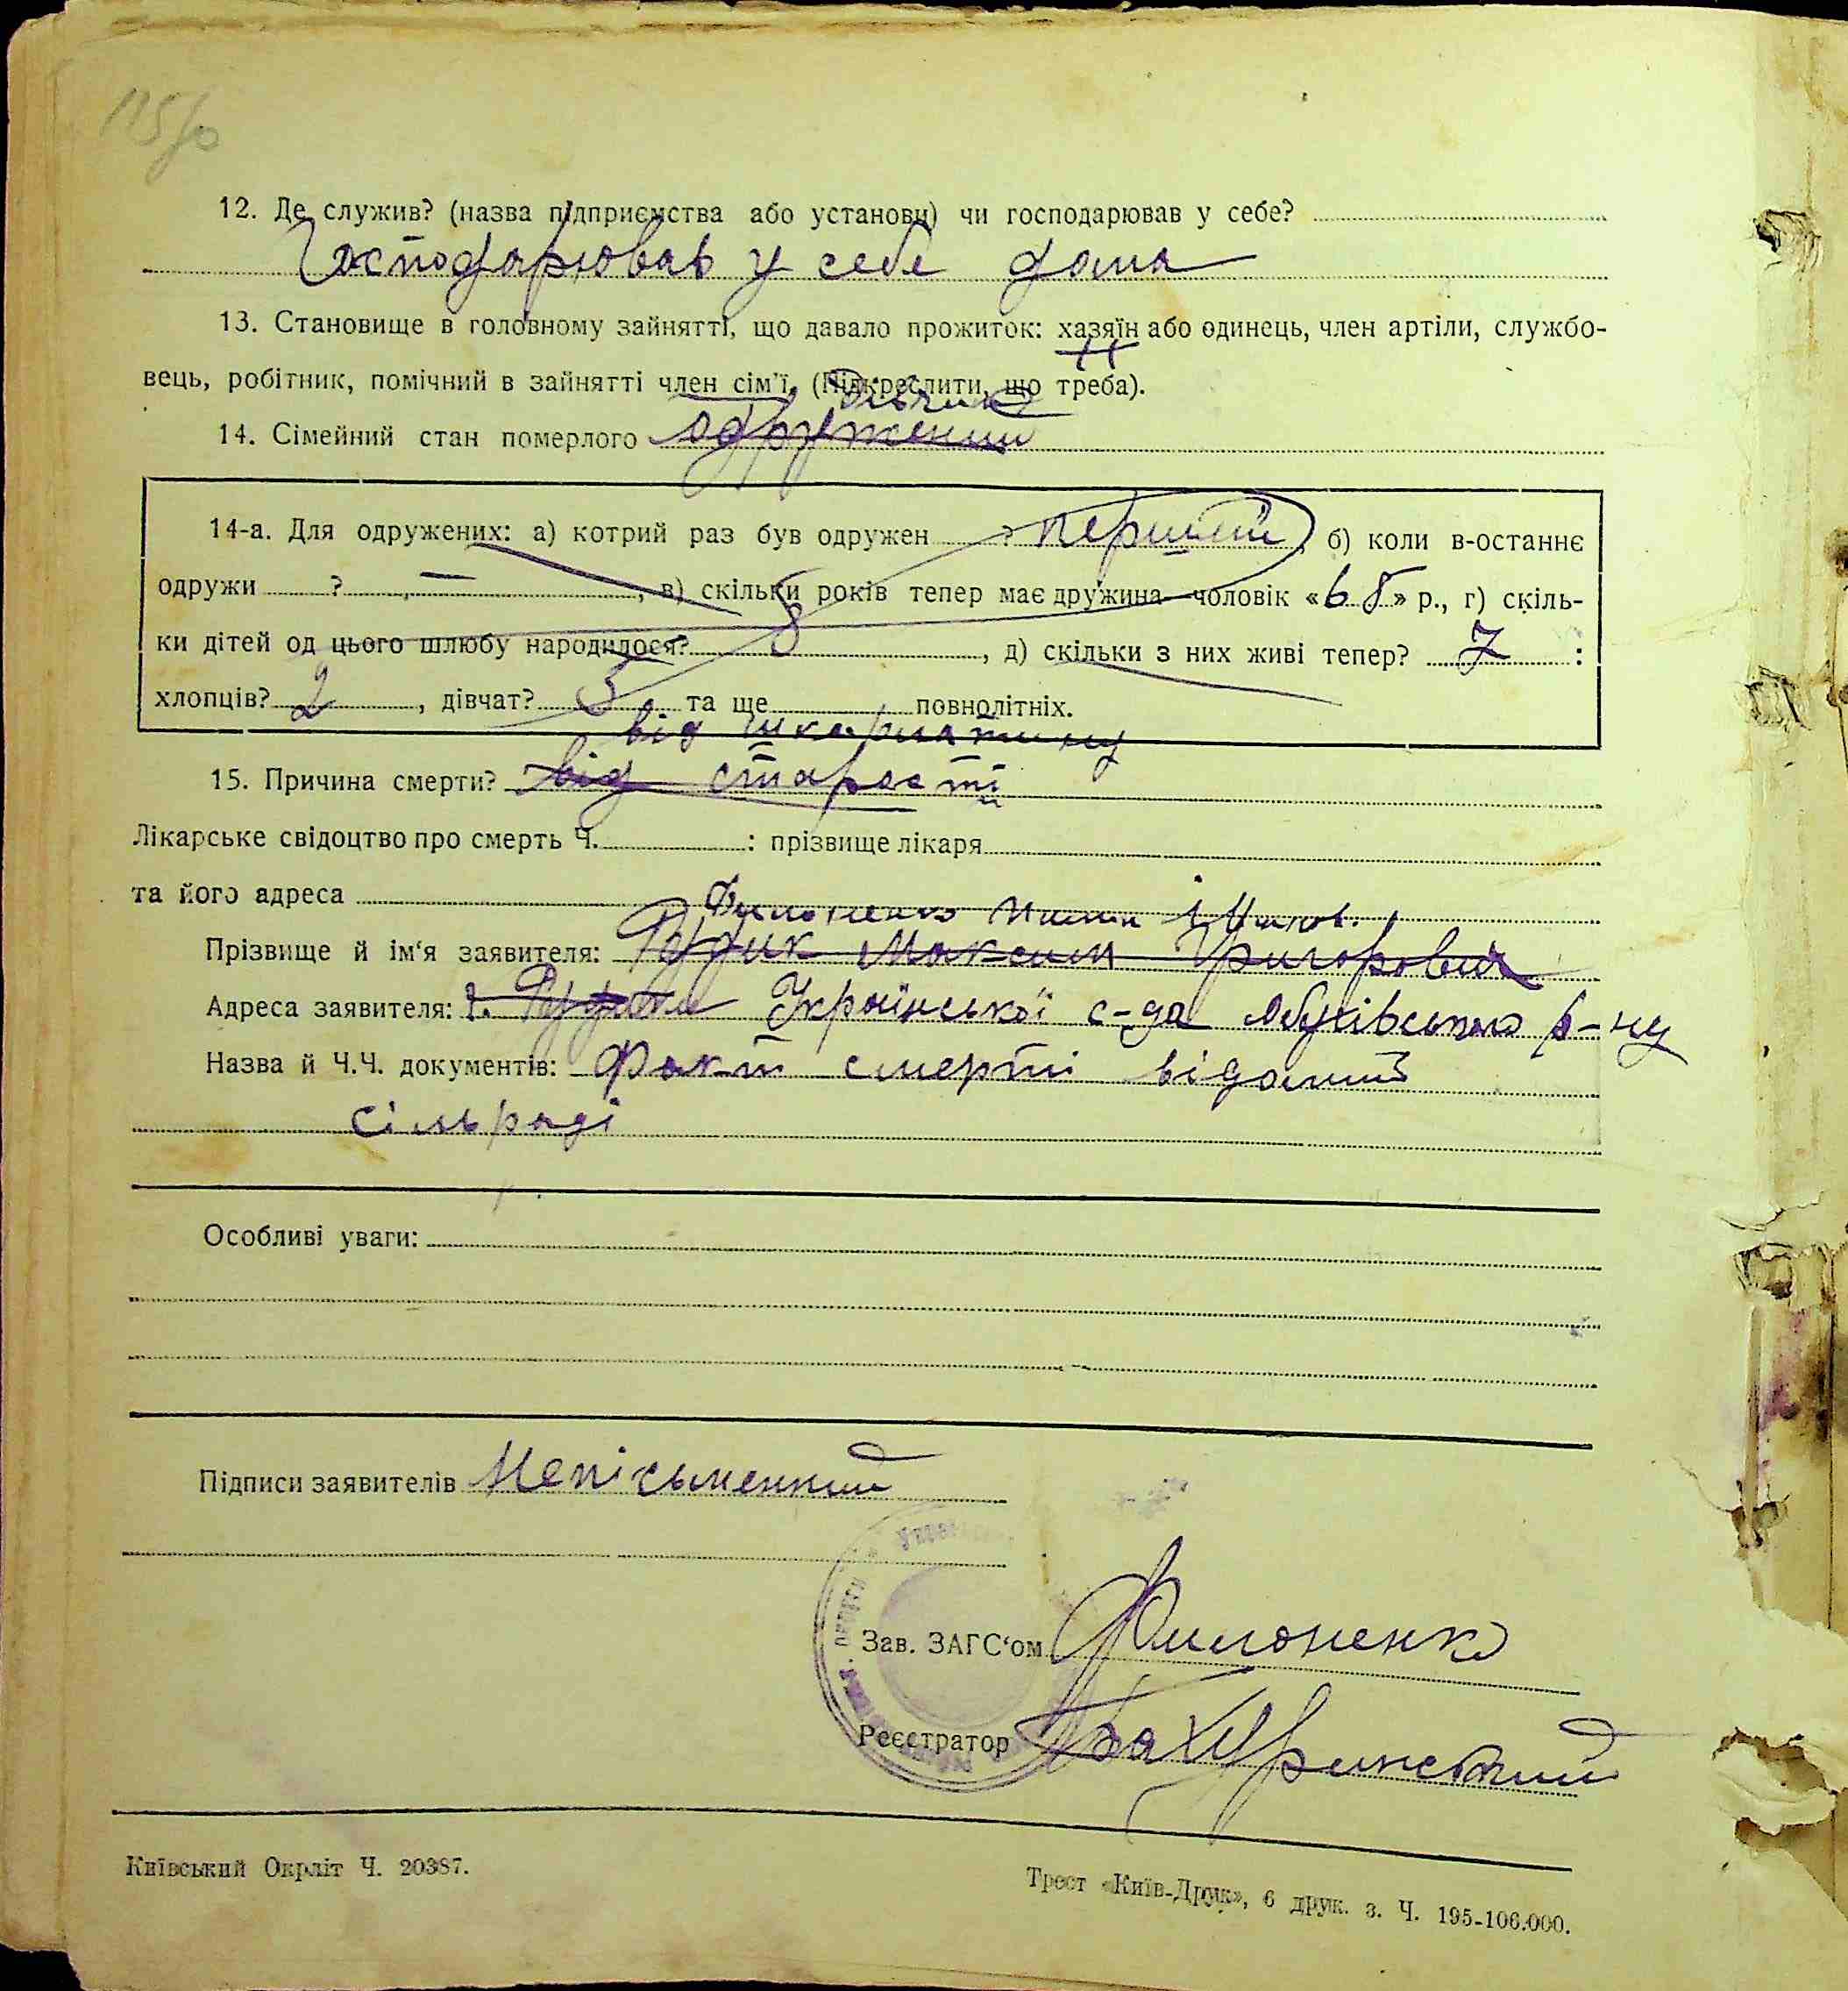 115/о
12. Де служив? (назва підприємства або установи) чи господарював у себе?
Господарював у себе дома
13. Становище в головному зайнятті, що давало прожиток: хазяїн або одинець, член артіли, службо-
вець, робітник, помічний в зайнятті член сім'ї. (Підкреслити, що треба).
14. Сімейний стан померлого одружений
14-а. Для одружених: а) котрий раз був одружен ? перший, б) коли в-останнє
одружи ? —, в) скільки років тепер має дружина—чоловік «68» р., г) скіль-
ки дітей од цього шлюбу народилося? 8, д) скільки з них живі тепер? 7 :
хлопців? 2, дівчат? 5 та ще повнолітніх.
від шкарлатини
15. Причина смерти? від старости
Лікарське свідоцтво про смерть Ч. : прізвище лікаря
та його адреса
Прізвище й ім'я заявителя: Рудик Максим Григорович
Адреса заявителя: Української с-да Обухівського р-ну
Назва й Ч.Ч. документів: Факт смерті відомий
сільраді
Особливі уваги:
Підписи заявителів Неписьменний
Зав. ЗАГС'ом Филоненко
Реєстратор
Київський Окрліт Ч. 20387.
Трест «Київ-Друк», 6 друк. з. Ч. 195-106.000.